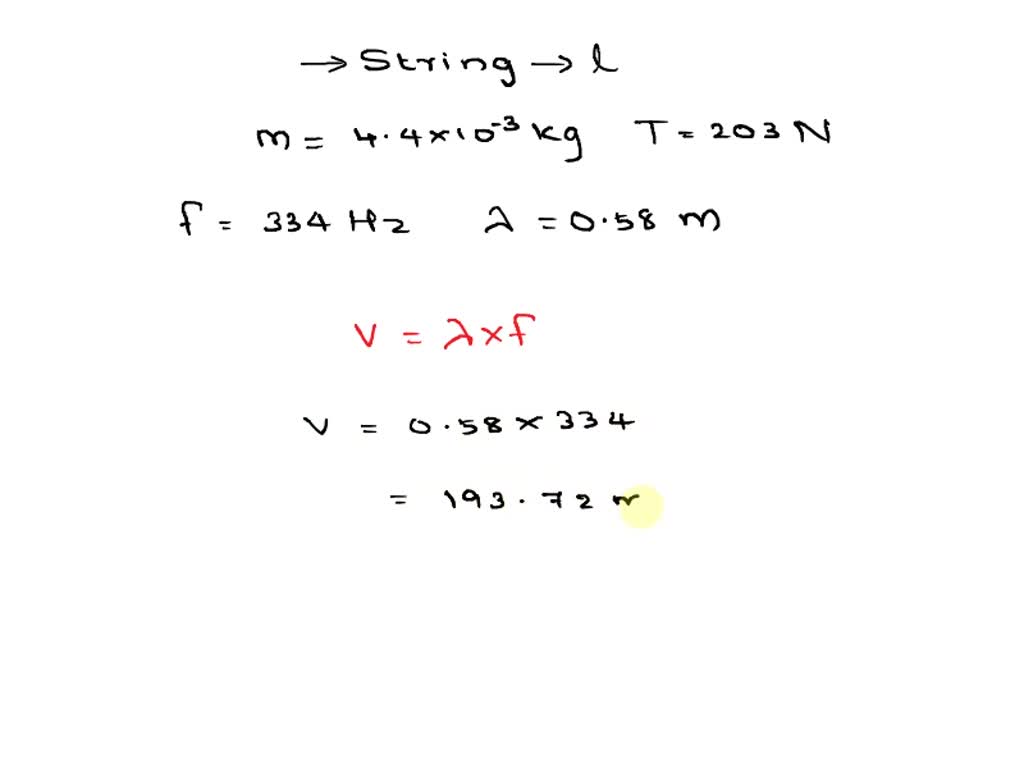 → String → l
m = 4.4×10⁻³ kg T = 203 N
f = 334 Hz λ = 0.58 m
v = λ×f
v = 0.58 × 334
= 193.72